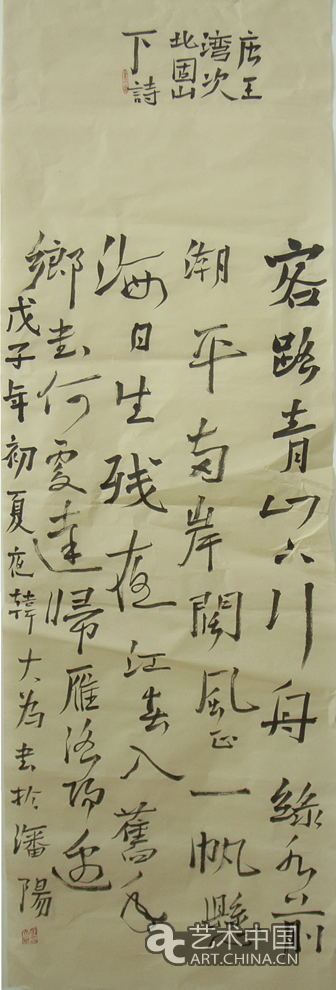 唐王
湾次
北固山
下詩
客路青山下行舟綠水前
潮平两岸闊風正一帆懸
海日生残夜江春入舊年
鄉书何處達歸雁洛陽邊
戊子年初夏夜韓大为书於瀋陽
艺术中国
ART.CHINA.CN